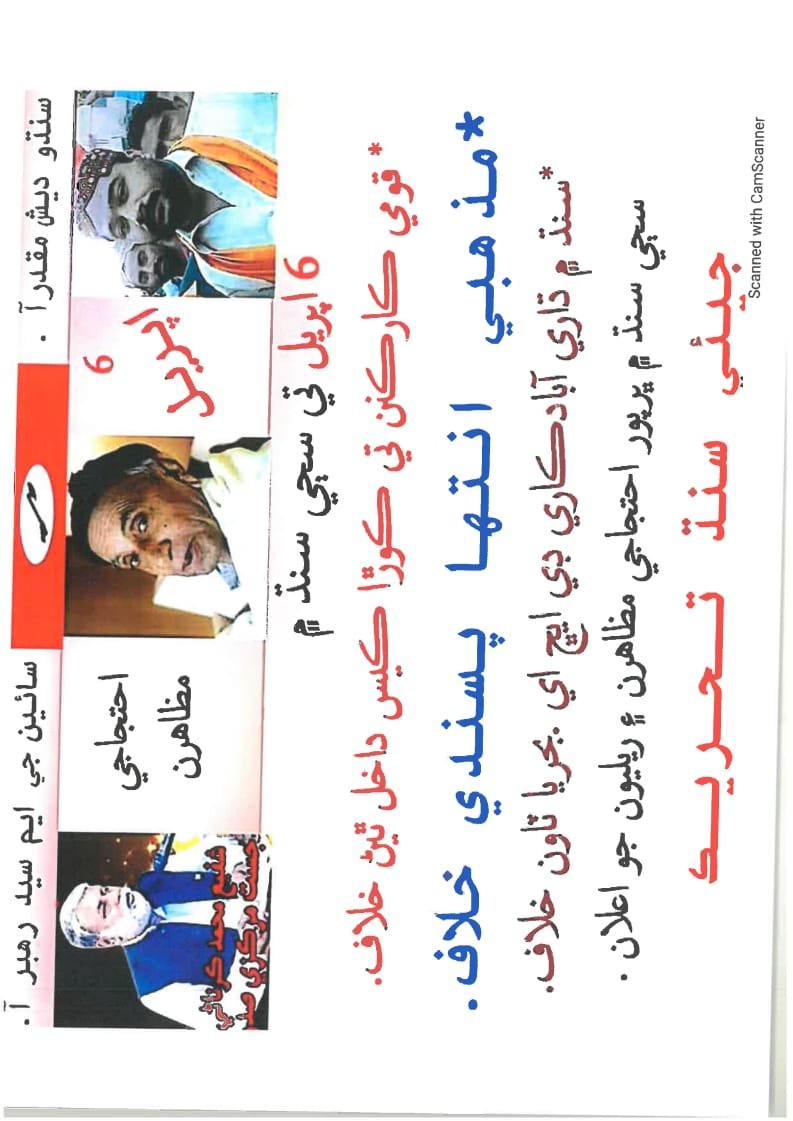 سائين جي ايم سيد رهبر آ.
سنڌو ديش مقدر آ .
شفيع محمد ڪرناڻي
جسقت مرڪزي صدر
احتجاجي
مظاهرن
6
اپريل
6 اپريل تي سڄي سنڌ ۾
* قومي ڪارڪنن تي ڪوڙا ڪيس داخل ٿيڻ خلاف.
*مذهبي انتها پسندي خلاف.
*سنڌ ۾ ڌاري آبادڪاري ڊي ايڇ اي بحريا ٽائون خلاف.
سڄي سنڌ ۾ ڀرپور احتجاجي مظاهرن ۽ ريليون جو اعلان .
جيئي سنڌ تحريڪ
Scanned with CamScanner